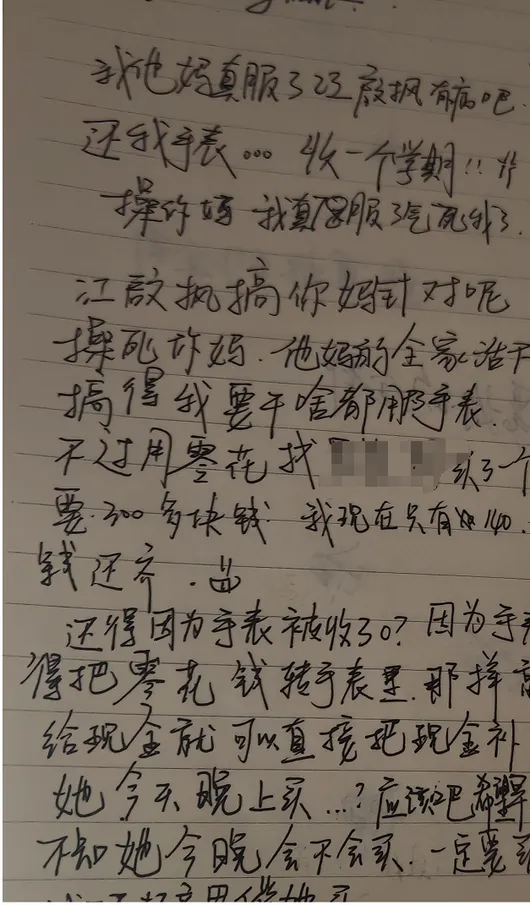 我他妈真服了江啟枫有病吧
还我手表... 收一个学期!!
操你妈 我真服了气死我了.
江啟枫搞你妈针对呢
操死你妈. 他妈的全家
搞得我要干啥都用手表.
不过用零花找 买了一个
要300多块钱. 我现在只有 140.
钱还齐.
还得因为手表被收了0? 因为手
得把零花钱转手表里. 那样
给现金就可以直接把现金补
她今天晚上买...? 应该吧
不知她今晚会不会买. 一定要